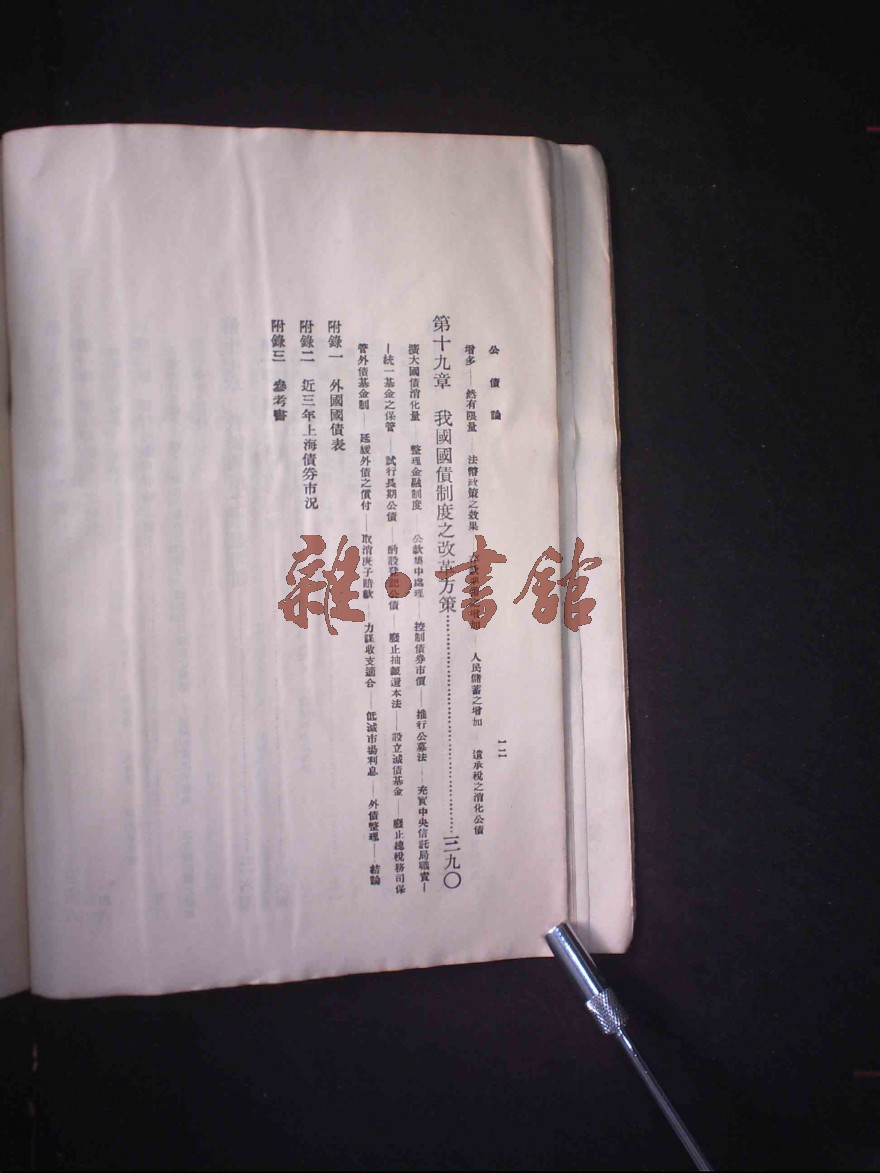 公債論
一二
增多——然有限量——法幣政策之效果——存款準備之增加——人民儲蓄之增加——遺承稅之消化公債
第十九章 我國國債制度之改革方策……三九〇
擴大國債消化量——整理金融制度——公款集中處理——控制債券市價——推行公募法——充實中央信託局職責—
—統一基金之保管——試行長期公債——酌設登記公債——廢止抽籤還本法——設立減債基金——廢止總稅務司保
管外債基金制——延緩外債之償付——取消庚子賠款——力謀收支適合——低減市場利息——外債整理——結論
附錄一 外國國債表
附錄二 近三年上海債券市況
附錄三 參考書
雜·書館